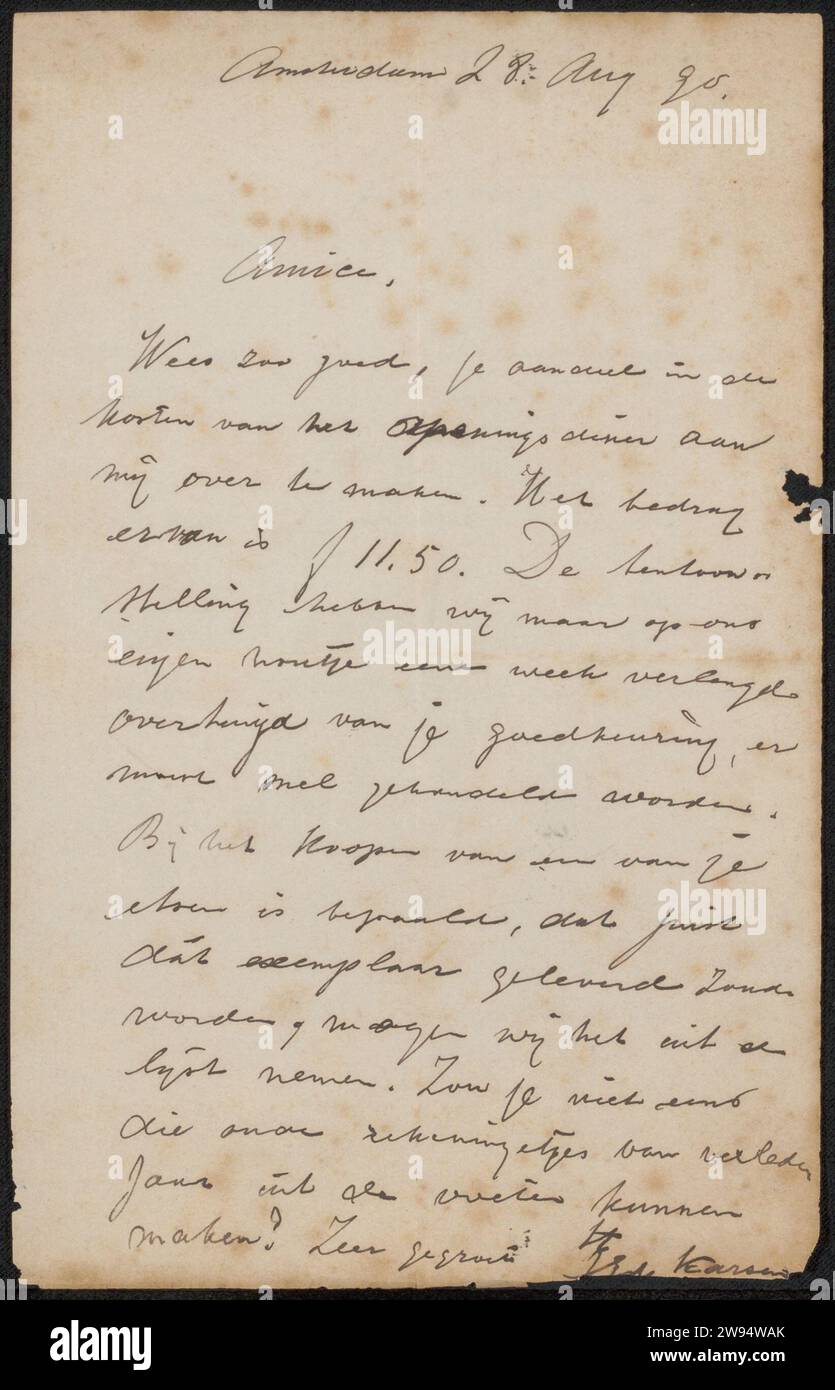 Amsterdam 28 Aug 90.
Amice,
Wees zoo goed, je aandeel in de
kosten van het openingsdiner aan
mij over te maken. Het bedrag
ervan is f 11.50. De tentoon=
stelling hebben wij maar op ons
eigen houtje een week verlengd
overtuigd van je goedkeuring, er
moest snel gehandeld worden.
Bij het koopen van een van je
etsen is bepaald, dat juist
dát exemplaar geleverd zoude
worden, mogen wij het uit de
lijst nemen. Zou je niet eens
die onze rekeningetjes van verleden
Jaar uit de voeten kunnen
maken? Zeer gegroet
Ed. Karsen
alamy
Image ID: 2W94WAK
www.alamy.com